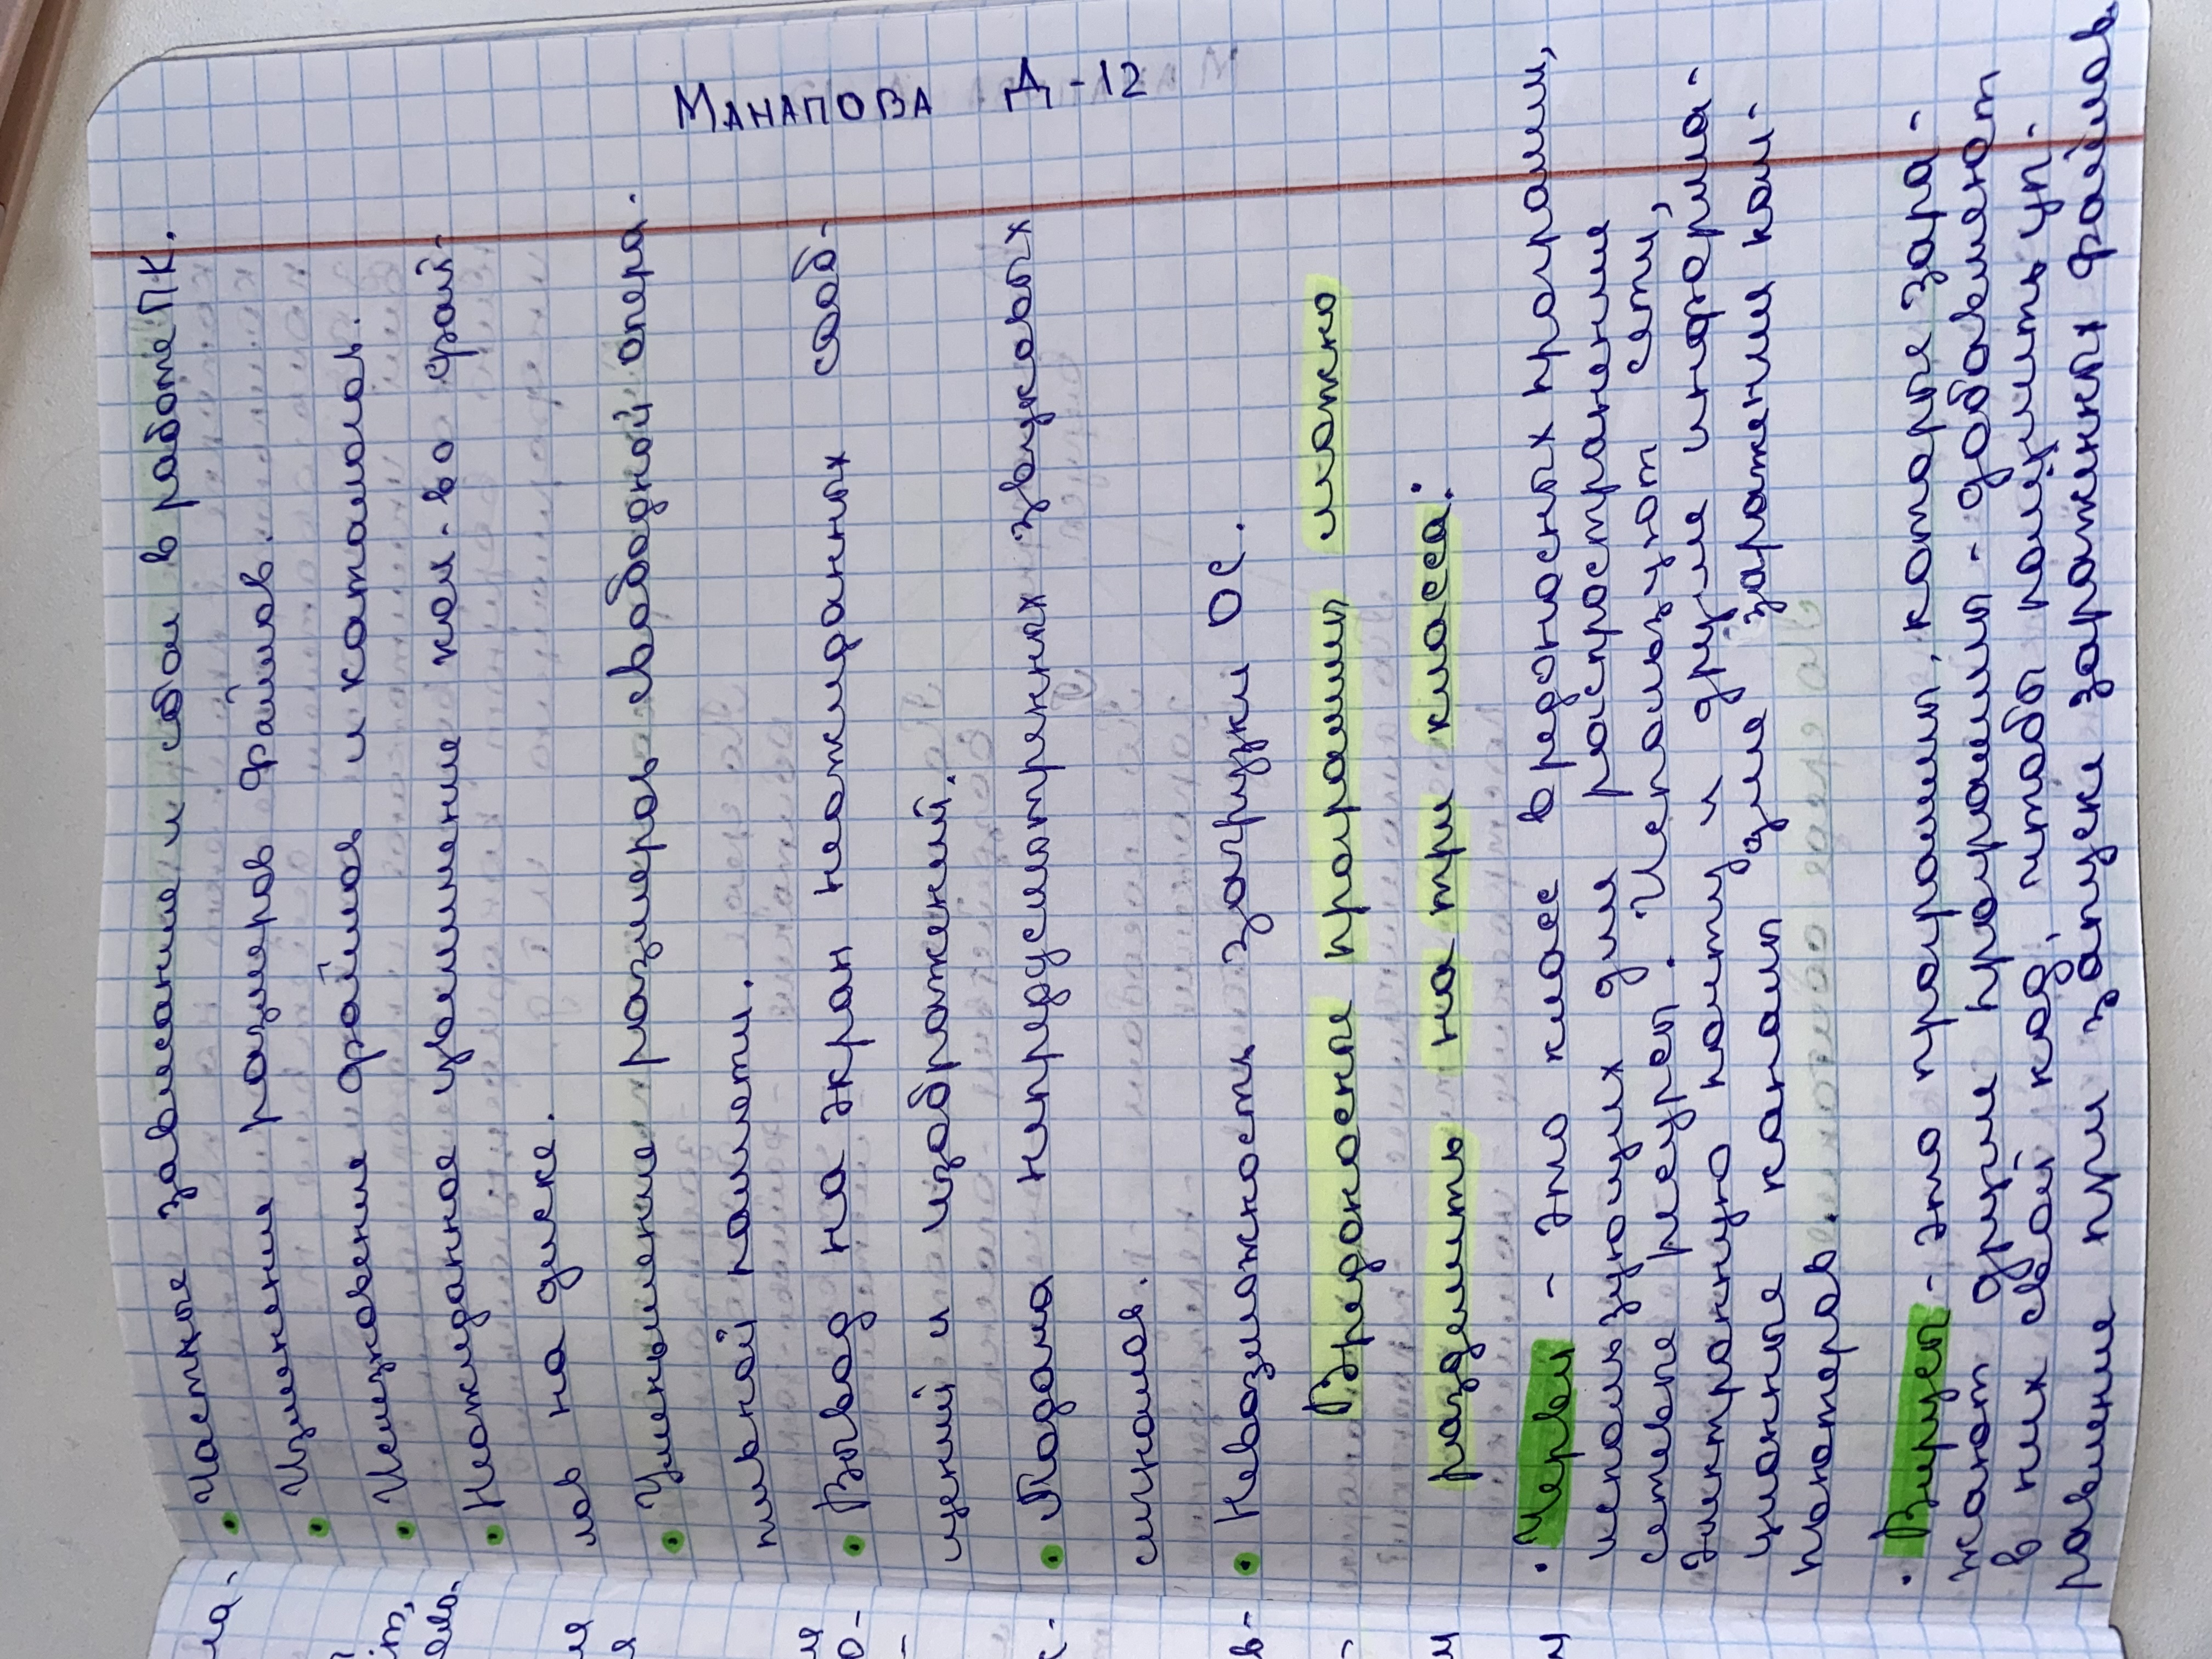 Манапова Д-12
• Частые зависания и сбои в работе ПК.
Изменения размеров файлов.
• Исчезновение файлов и каталогов.
• Неожиданное увеличение кол-во фай-
лов на диске.
• Уменьшение размеров свободной опера-
тивной памяти.
• Вывод на экран неожиданных сооб-
щений и изображений.
• Подача непредусмотренных звуковых
сигналов.
• Невозможность загрузки ОС.
Вредоносные программы можно
разделить на три класса:
• Черви - это класс вредоносных программ,
использующих для распространения
сетевые ресурсы. Используют сети,
электронную почту и другие информа-
ционные каналы для заражения ком-
пьютеров.
• Вирусы - это программы, которые зара-
жают другие программы - добавляют
в них свой код, чтобы получить уп-
равление при запуске зараженных файлов